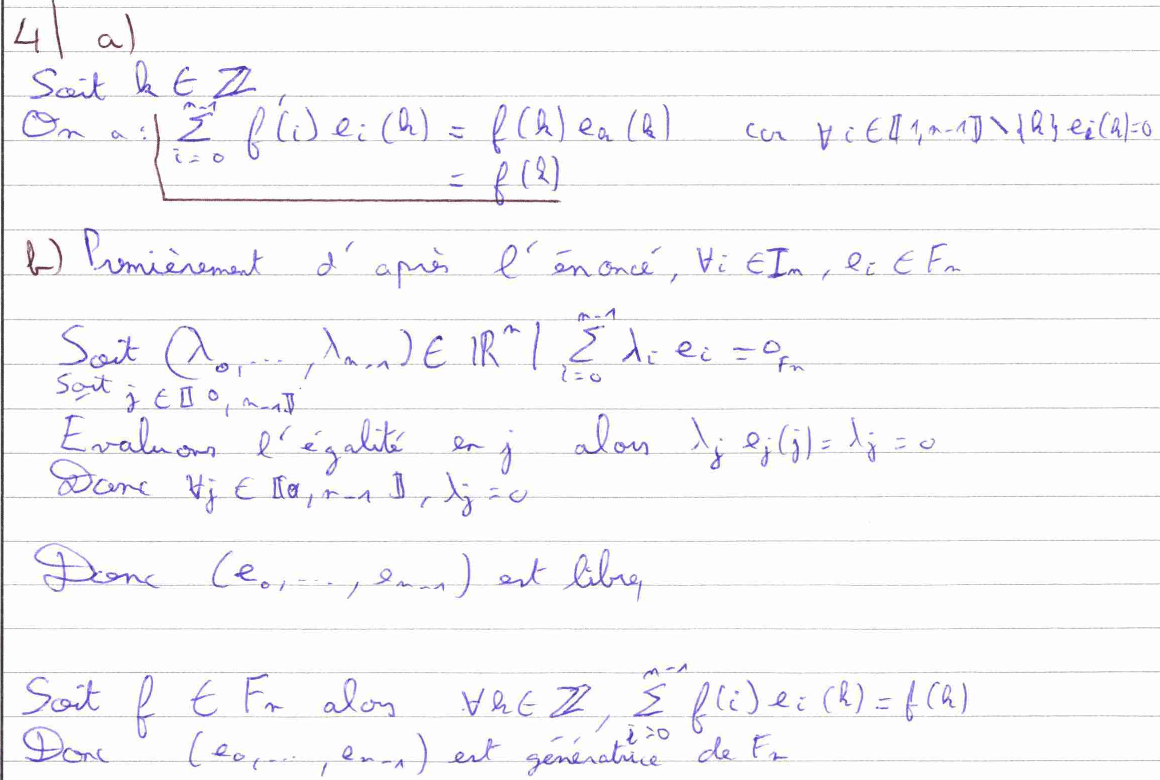 4| a)
Soit k ∈ ℤ,
On a : ∑_{i=0}^{n-1} f(i) e_i(k) = f(k) e_k(k) car ∀ i ∈ ⟦1, n-1⟧ \ {k} e_i(k) = 0
= f(k)
b) Premièrement d'après l'énoncé, ∀i ∈ I_n, e_i ∈ F_n
Soit (λ_0, ..., λ_{n-1}) ∈ ℝ^n | ∑_{i=0}^{n-1} λ_i e_i = 0_{F_n}
Soit j ∈ ⟦0, n-1⟧
Evaluons l'égalité en j alors λ_j e_j(j) = λ_j = 0
Donc ∀j ∈ ⟦0, n-1⟧, λ_j = 0
Donc (e_0, ..., e_{n-1}) est libre,
Soit f ∈ F_n alors ∀k ∈ ℤ, ∑_{i=0}^{n-1} f(i) e_i(k) = f(k)
Donc (e_0, ..., e_{n-1}) est génératrice de F_n